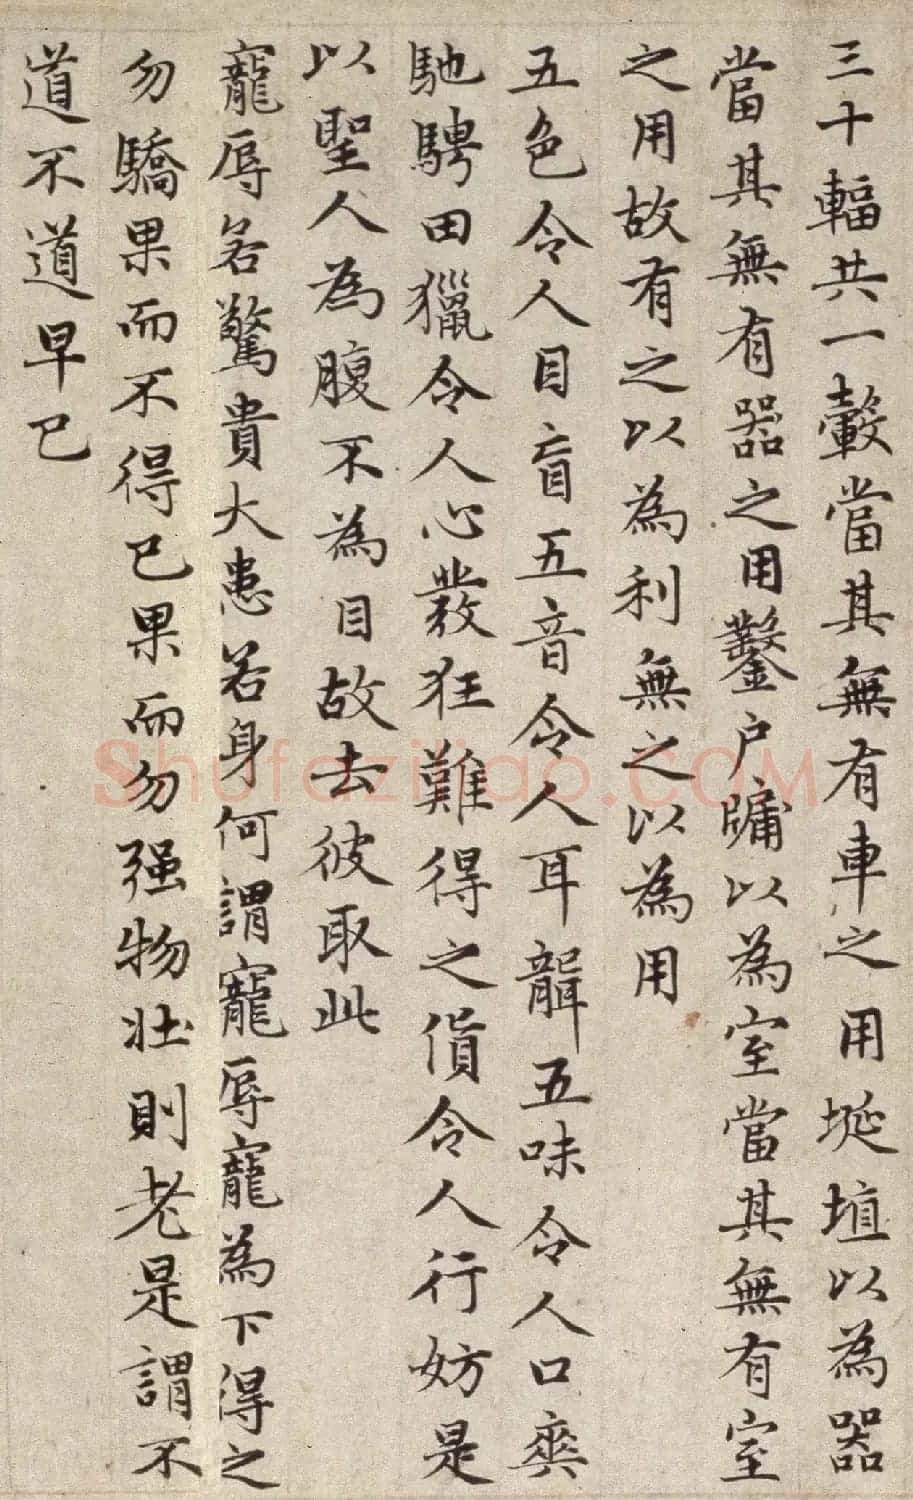 三十輻共一轂當其無有車之用埏埴以為器
當其無有器之用鑿户牖以為室當其無有室
之用故有之以為利無之以為用
五色令人目盲五音令人耳聾五味令人口爽
馳騁田獵令人心發狂難得之貨令人行妨是
以聖人為腹不為目故去彼取此
寵辱若驚貴大患若身何謂寵辱寵為下得之
勿驕果而不得已果而勿强物壮則老是謂不
道不道早已
Shufaziliao.COM